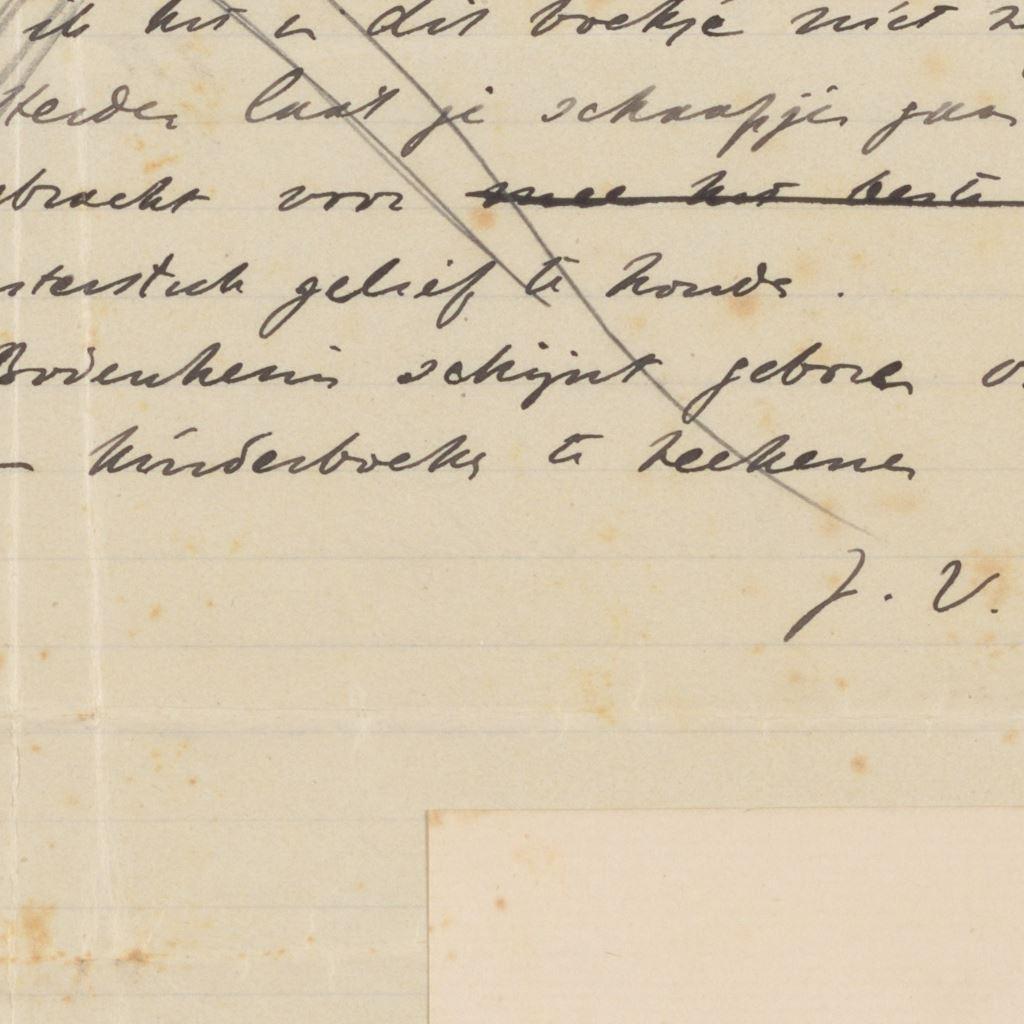 ik het in dit boekje niet
Herder laat je schaapjes gaan
bracht voor mee het beste
gelief te houden .
Bodenheim schijnt geboren
— kinderboeken te teekenen
J. V.